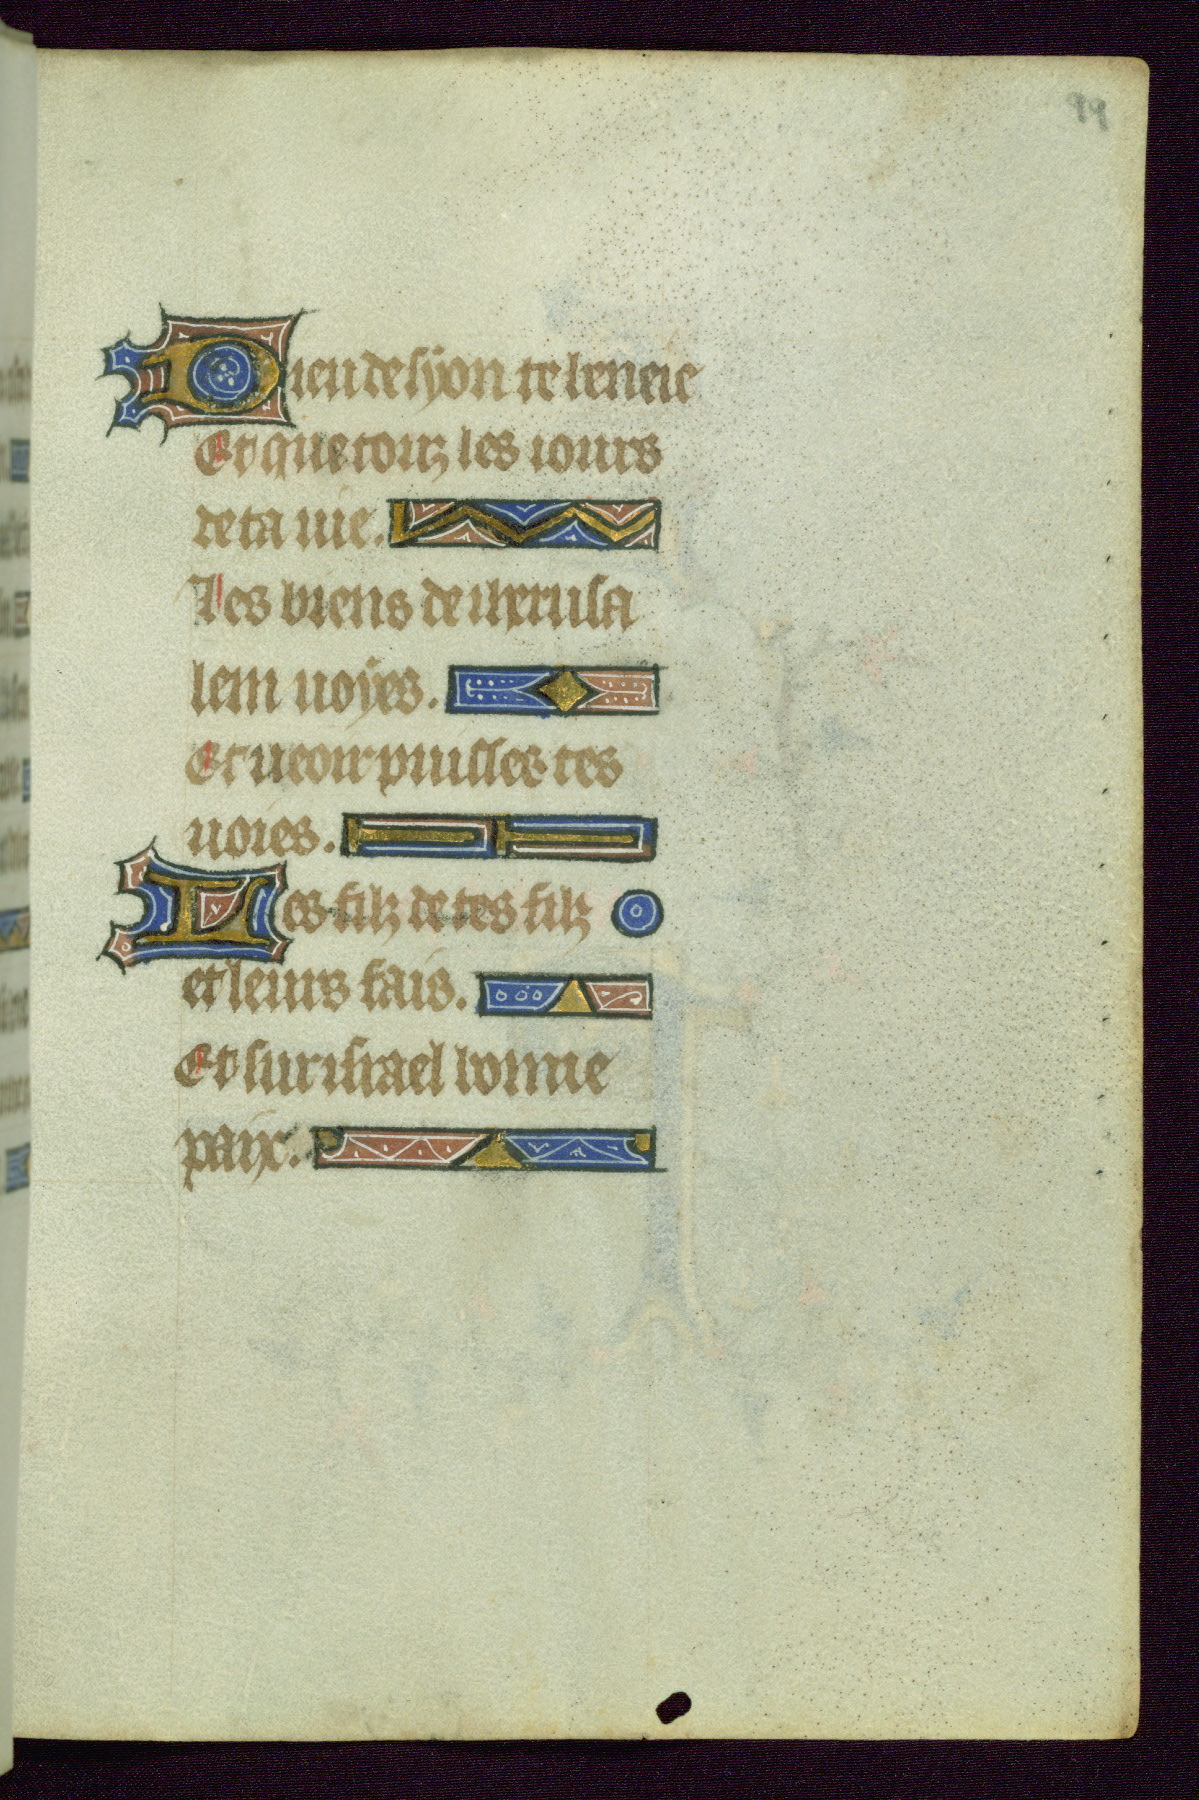 Dieu de syon te beneie
Et que touz les iours
de ta uie.
Les biens de iherusa
lem uoyes.
Et ueoir puisses tes
uoies.
Les filz de tes filz
et leurs fais.
Et sur israel bonne
paix.